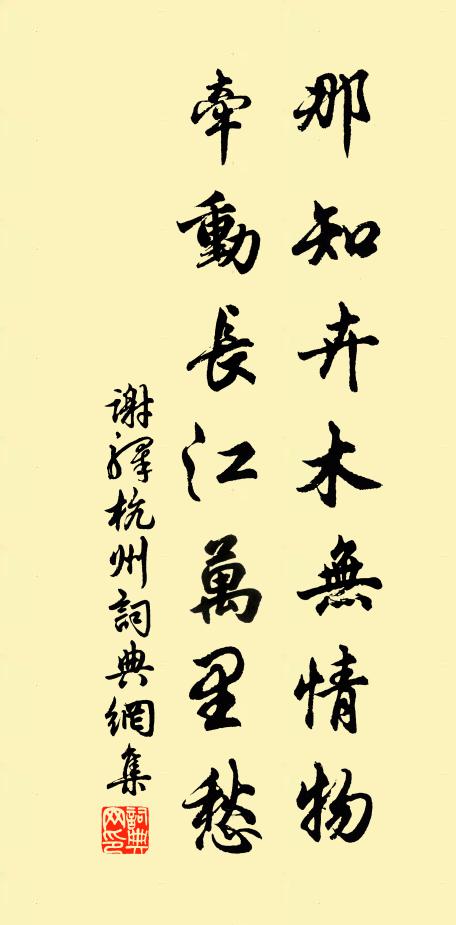 那知卉木無情物
牽動長江萬里愁
謝驛杭州詞典網集
詞典網印